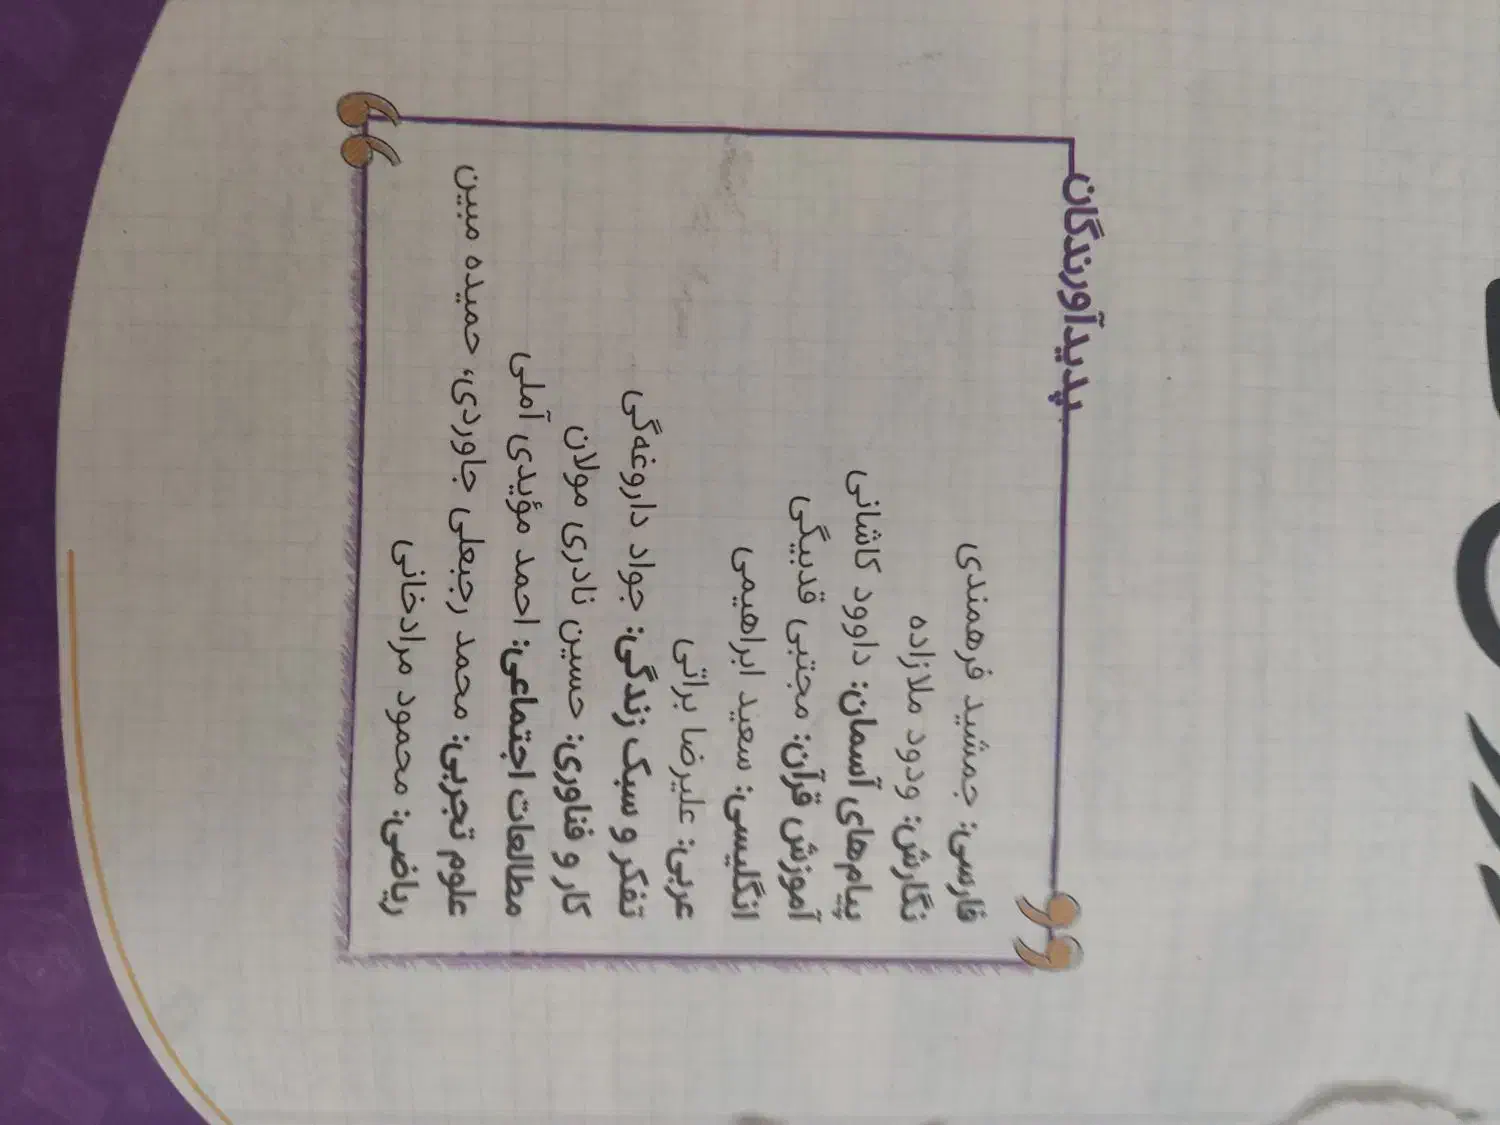 پدیدآورندگان
فارسی: جمشید فرهمندی
نگارش: ودود ملازاده
پیام‌های آسمان: داوود کاشانی
آموزش قرآن: مجتبی قدبیگی
انگلیسی: سعید ابراهیمی
عربی: علیرضا براتی
تفکر و سبک زندگی: جواد داروغه‌گی
کار و فناوری: حسین نادری مولان
مطالعات اجتماعی: احمد مؤیدی آملی
علوم تجربی: محمد رجبعلی جاوردی، حمیده مبین
ریاضی: محمود مرادخانی